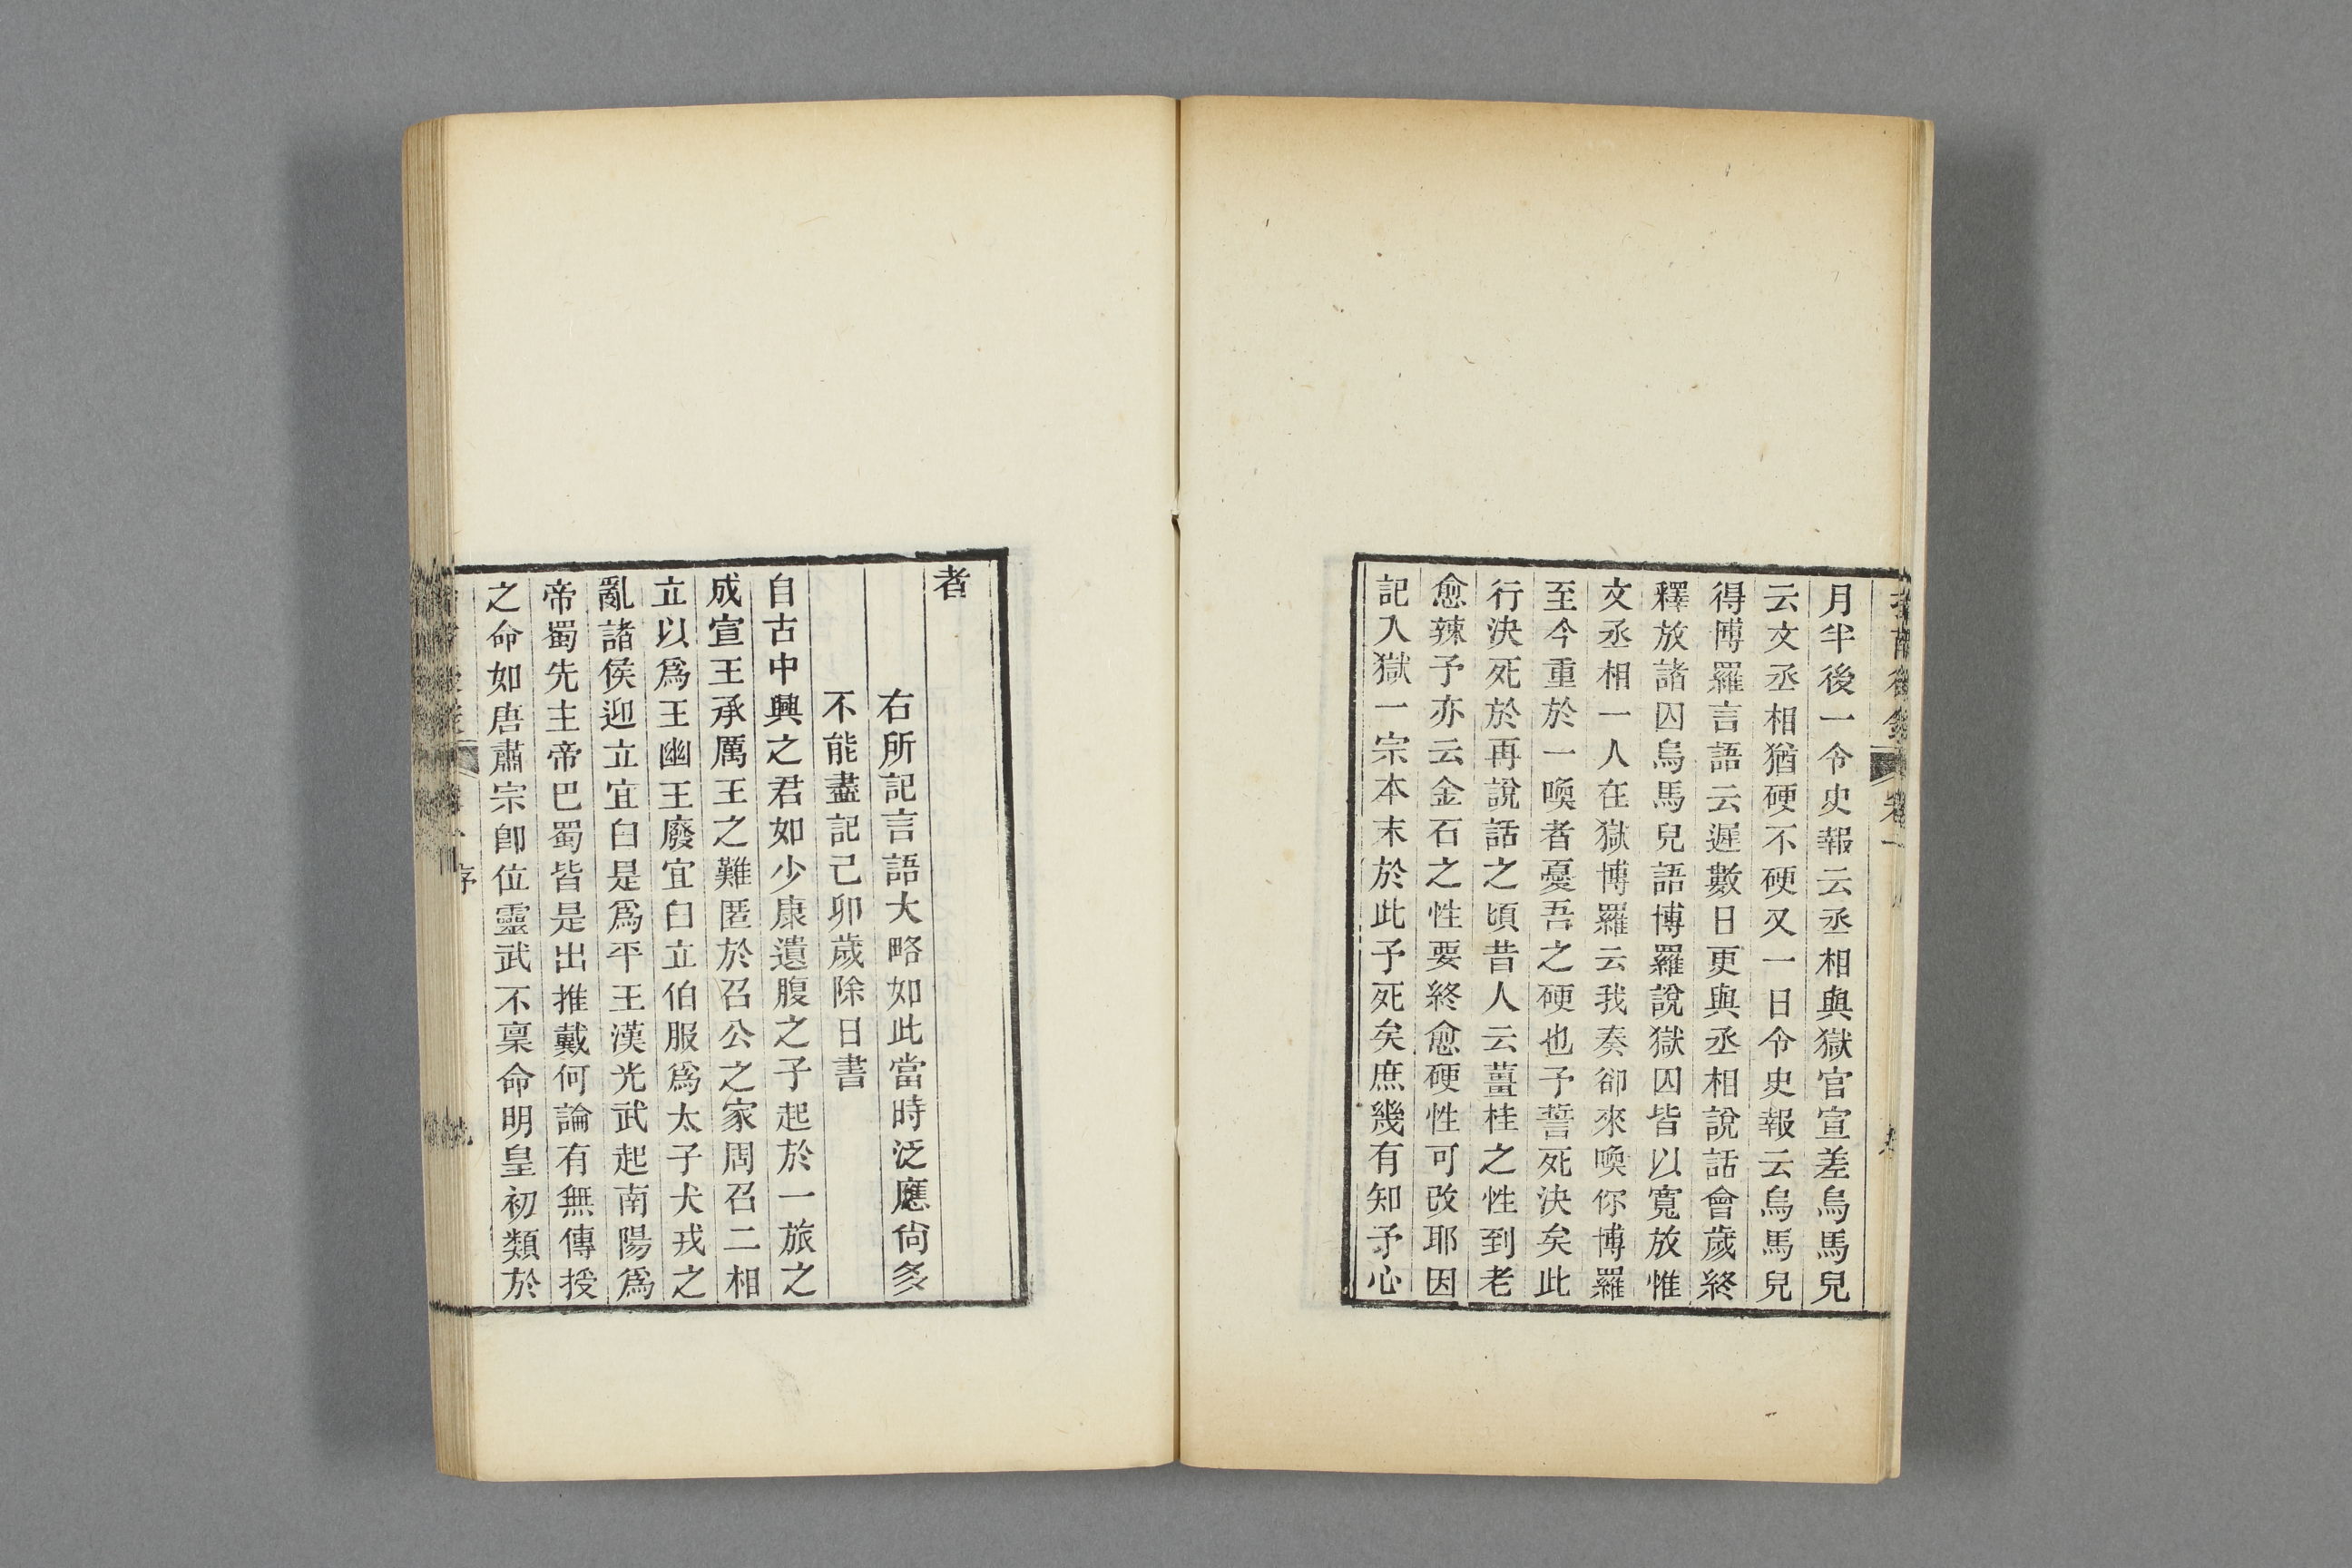 指南後錄 卷一
月半後一令史報云丞相與獄官宣差烏馬兒
云文丞相猶硬不硬又一日令史報云烏馬兒
得博羅言語云遲數日更與丞相說話會歲終
釋放諸囚烏馬兒語博羅說獄囚皆以寬放惟
文丞相一人在獄博羅云我奏卻來喚你博羅
至今重於一喚者憂吾之硬也予誓死決矣此
行決死於再說話之頃昔人云薑桂之性到老
愈辣予亦云金石之性要終愈硬性可改耶因
記入獄一宗本末於此予死矣庶幾有知予心
者
右所記言語大略如此當時泛應尙多
不能盡記己卯歲除日書
自古中興之君如少康遺腹之子起於一旅之
成宣王承厲王之難匿於召公之家周召二相
立以爲王幽王廢宜臼立伯服爲太子犬戎之
亂諸侯迎立宜臼是爲平王漢光武起南陽爲
帝蜀先主帝巴蜀皆是出推戴何論有無傳授
之命如唐肅宗卽位靈武不稟命明皇初類於
序